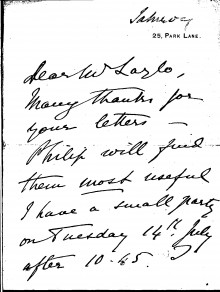 25, PARK LANE.
Dear Mr Laszlo,
Many thanks for
your letters –
Philip will find
them most useful
I have a small party
on Tuesday 14th July
after 10.45.